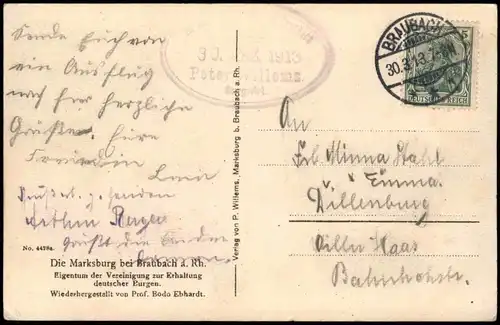 Sende Euch von
ein Ausflug
nach hier herzliche
Grüße. Eure
Freundin
Arthur
grüßt die beiden
No. 4478a.
Die Marksburg bei Braubach a. Rh.
Eigentum der Vereinigung zur Erhaltung
deutscher Burgen.
Wiederhergestellt von Prof. Bodo Ebhardt.
Verlag von P. Willems, Marksburg b. Braubach a. Rh.
1913
Peter Willems
BRAUBACH
30.3.13
5
DEUTSCHES REICH
An
Frl. Minna Stahl
u. Emma.
Dillenburg
Villa Haas
Bahnhofstr.